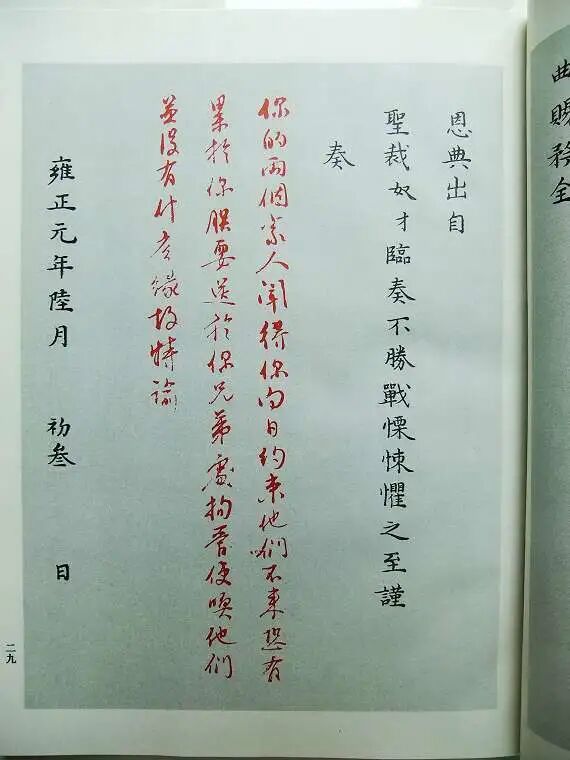 曲賜矜全
恩典出自
聖裁奴才臨奏不勝戰慄悚懼之至謹
奏
你的兩個家人聞得你向日約束他們不來恐有
累於你朕要送於你兄弟處拘管使喚他們
並沒有什庅緣故特諭
雍正元年陸月 初叁 日
二九